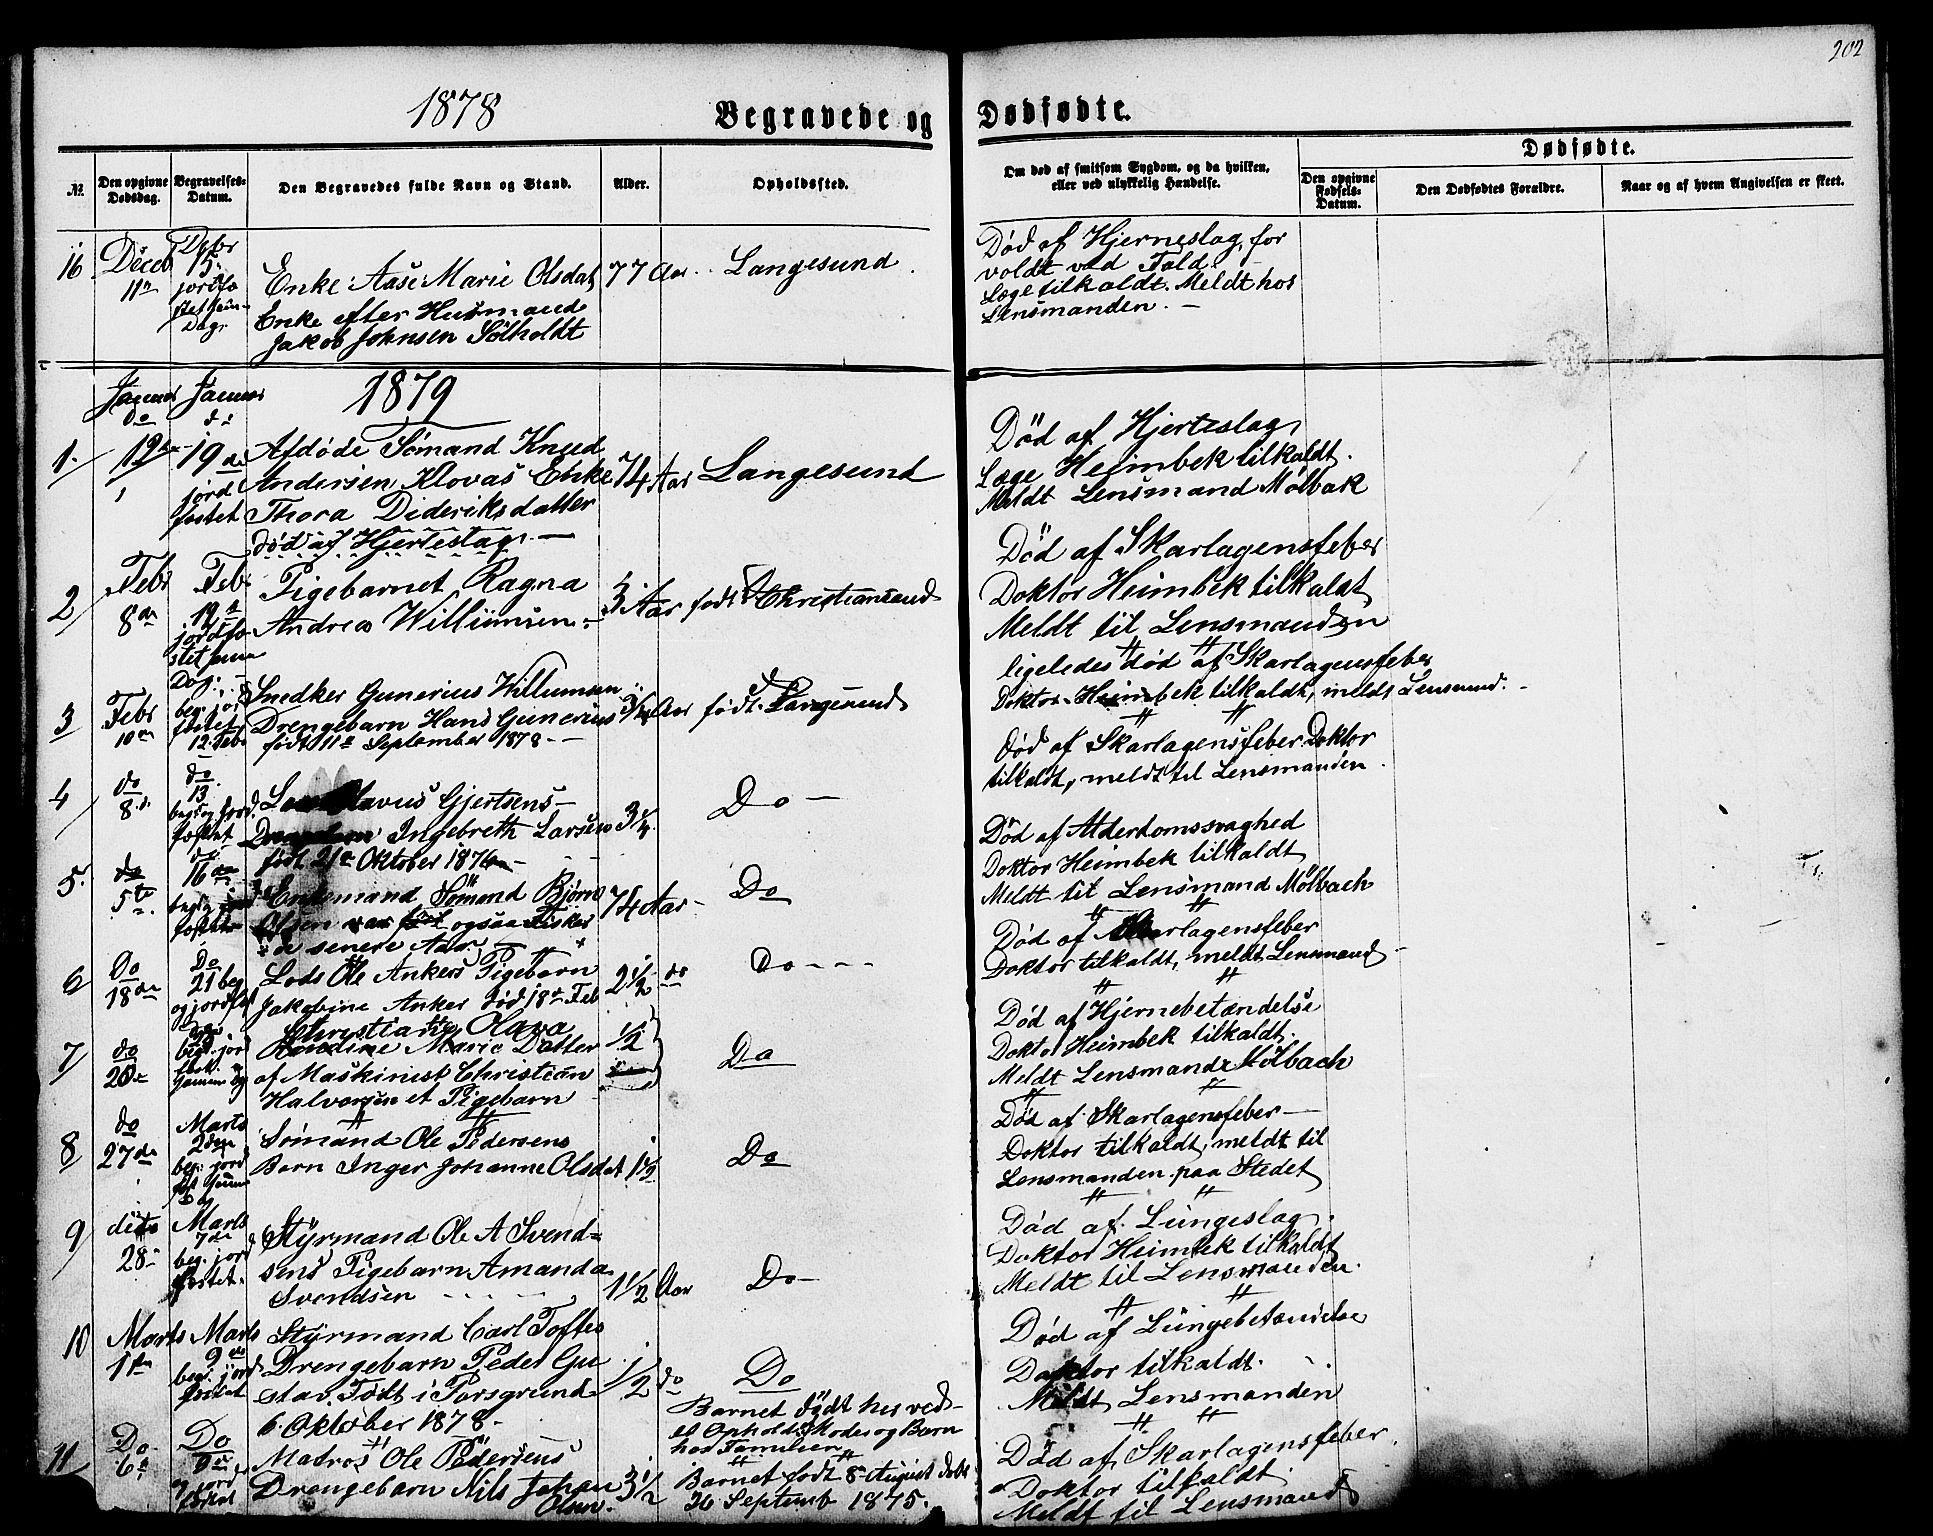 202
1878
Begravede og Dødfødte.
№
Den opgivne Dødsdag.
Begravelses-Datum.
Den Begravedes fulde Navn og Stand.
Alder.
Opholdssted.
Om død af smitsom Sygdom, og da hvilken,
eller ved ulykkelig Hændelse.
Dødfødte.
Den opgivne Fødsels-Datum.
Den Dødfødtes Forældre.
Naar og af hvem Angivelsen er skeet.
16 Deceb 11te
15
jordfæ
stet sam
Dag
Enke Aase Marie Olsdat 77 Aar Langesund
Enke efter Husmand
Jakob Johnsen Sølholdt
Død af Hjerneslag, for
voldt ved Fald
Læge tilkaldt. Meldt hos
Lensmanden.
1879
Januar Januar
do
1. 12te 19de
jord
fæstet
Afdøde Sømand Knud
Andersen Klovas Enke 74 Aar Langesund
Thora Dideriksdatter
død af Hjerteslag
Død af Hjerteslag
Læge Heimbek tilkaldt.
Meldt Lensmand Mølbak
2 Febr 8de Feb 12te
jordfæ
stet samme
Dag
Pigebarnet Ragna
Andrea Willumsen 3 Aar født Christiansand
Død af Skarlagensfeber
Doktor Heimbek tilkaldt
Meldt til Lensmanden
3 Febr 10de
beg. jord
fæstet
12 Feb
Snedker Gunerius Willumsen
Drengebarn Hans Gunerius Aar født Langesund
født 11te September 1878
ligeledes død af Skarlagensfeber
Doktor Heimbek tilkaldt, meldt Lensmand.
4 do 8de do 13
begr og jord
fæstet
Olavus Gjertsens
Drengebarn Ingebreth Larsen Do
født 21de Oktober 187
død af Skarlagensfeber Doktor
tilkaldt, meldt til Lensmanden
5. do 5te 16de
Enkemand Sømand Bjørn
Olsen var født ogsaa Fisker 74 Aar Do
de senere Aar
Død af Alderdomssvaghed
Doktor Heimbek tilkaldt
Meldt til Lensmand Mølbach
6 Do 18de Do 21 beg
og jordfæst
Lods Ole Ankers Pigebarn 2 1/2 do Do
Jakobine Anker død 18de Feb
Død af Skarlagensfeber
Doktor tilkaldt, meldt Lensmand
7 do 28de
begr. jord
Christiane Olava
Marie Datter 1/2 Do
af Maskinist Christian
Halvorsen et Pigebarn
Død af Hjernebetændelse
Doktor Heimbek tilkaldt.
Meldt Lensmand Mølbach
8 do 27de Marts 2den
beg. jord
Sømand Ole Pedersens
Barn Inger Johanne Olsdat 1 1/2 Do
Død af Skarlagensfeber
Doktor tilkaldt, meldt til
Lensmanden paa Stedet
9 dito 28 Marts 7de
beg. jord
fæstet
Styrmand Ole A Svend=
sens Pigebarn Amanda
Svendsen 1 1/2 Aar Do
Død af Lungeslag
Doktor Heimbek tilkaldt
Meldt til Lensmanden.
10 Marts 1ste Marts 9de
beg. jord
fæstet
Styrmand Carl Toftes
Drengebarn Peder Gu
stav. Født i Porsgrund 1/2 do Do
6 Oktober 1878
Barnet
Opholds og Barn
hos Familien
Død af Lungebetændelse
Doktor tilkaldt.
Meldt Lensmanden
11 Do 6te Do
Matros Ole Pedersens
Drengebarn Nils Johan 3 1/2
Olsen.
Barnet født 8 August døbt
26 Septemb 1875.
Død af Skarlagensfeber
Doktor tilkaldt
Meldt til Lensmand